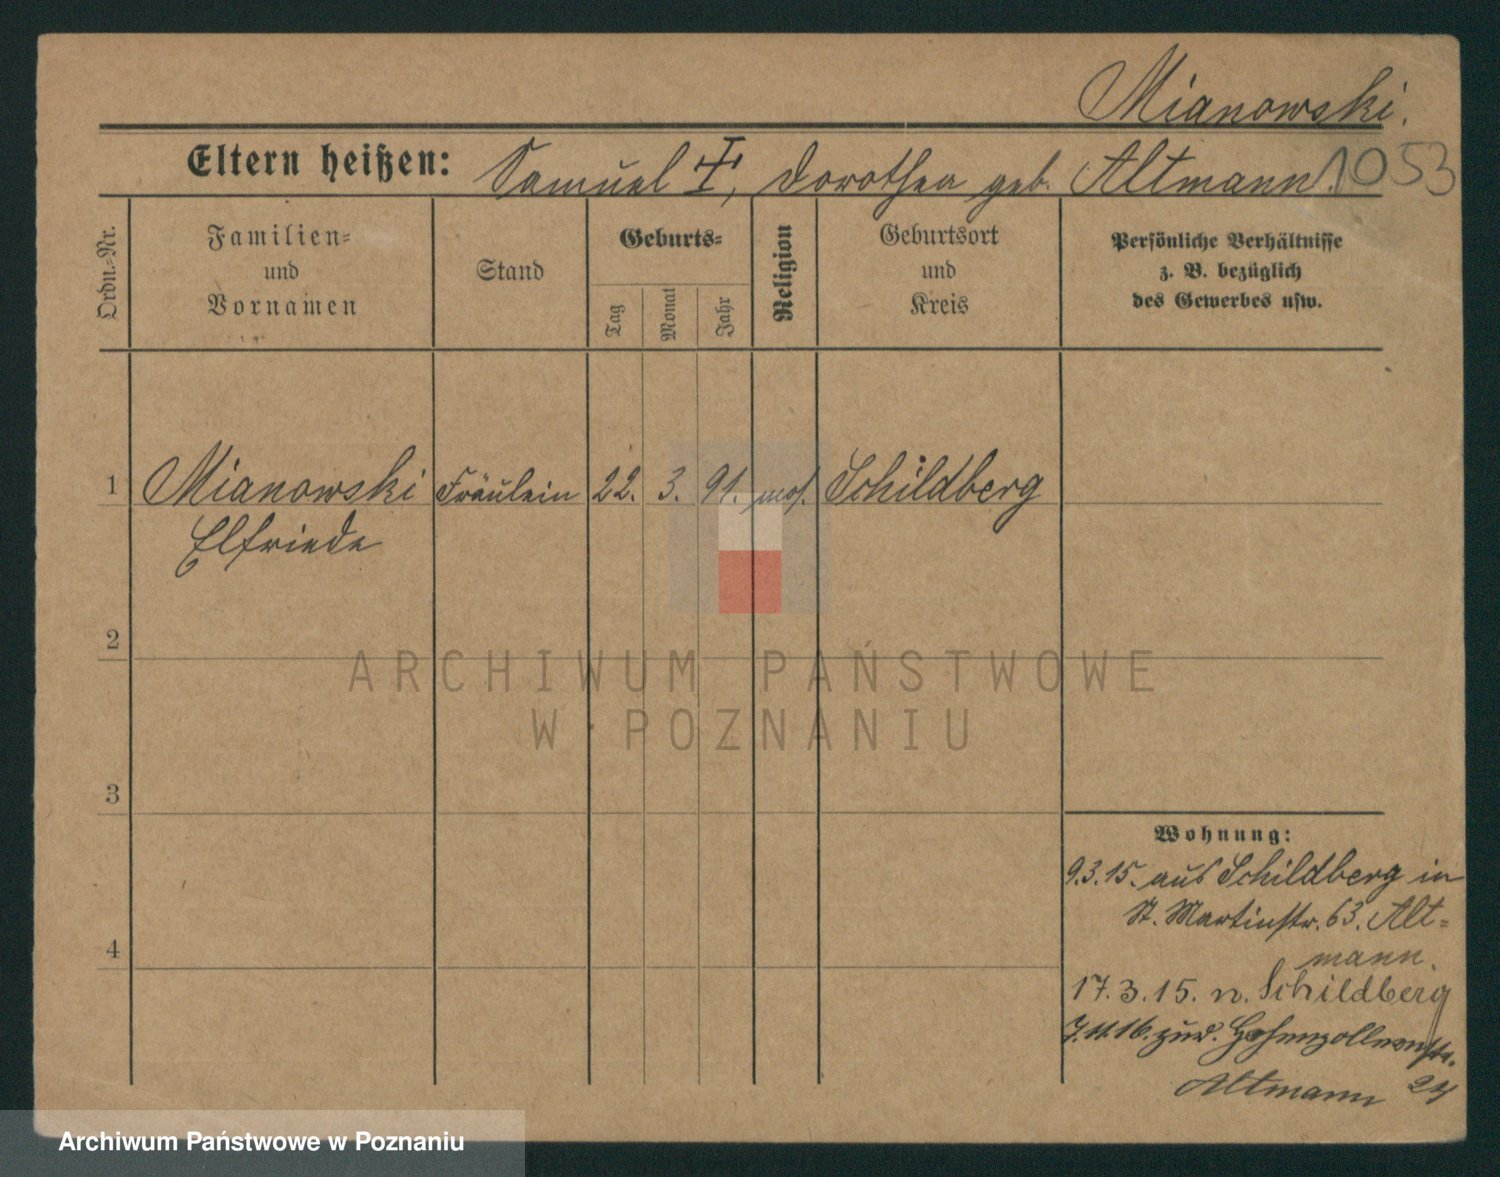 Mianowski.
Eltern heißen: Samuel †, Dorothea geb. Altmann. 1053
Ordn.-Nr.
Familien-
und
Vornamen
Stand
Geburts-
Tag
Monat
Jahr
Religion
Geburtsort
und
Kreis
Persönliche Verhältnisse
z. B. bezüglich
des Gewerbes usw.
1 Mianowski Fräulein 22. 3. 91. mos. Schildberg
Elfriede
2
ARCHIWUM PAŃSTWOWE
W POZNANIU
3
Wohnung:
9.3.15. aus Schildberg in
St. Martinstr. 63. Alt-
mann.
4
17.3.15. n. Schildberg
7.11.16. zud. Hohenzollernstr.
Altmann 24
Archiwum Państwowe w Poznaniu